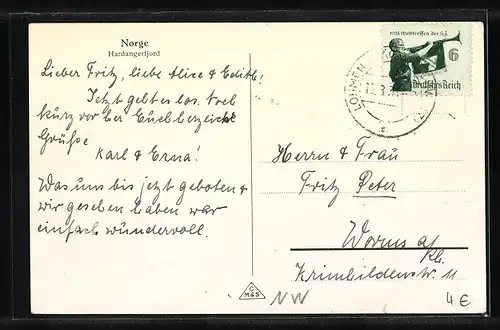 Norge
Hardangerfjord
Lieber Fritz, liebe Alice & Edith!
Jetzt geht es los. Noch
kurz vorher Euch herzlichst
Grüße
Karl & Erna!
Was uns bis jetzt geboten &
wir gesehen haben war
einfach wundervoll.
C
M&S
1935 Welttreffen der HJ
6
Deutsches Reich
LOHMEN
Herrn & Frau
Fritz Peter
Worms a/
Rh.
Krimhildenstr. 11
NW
4€